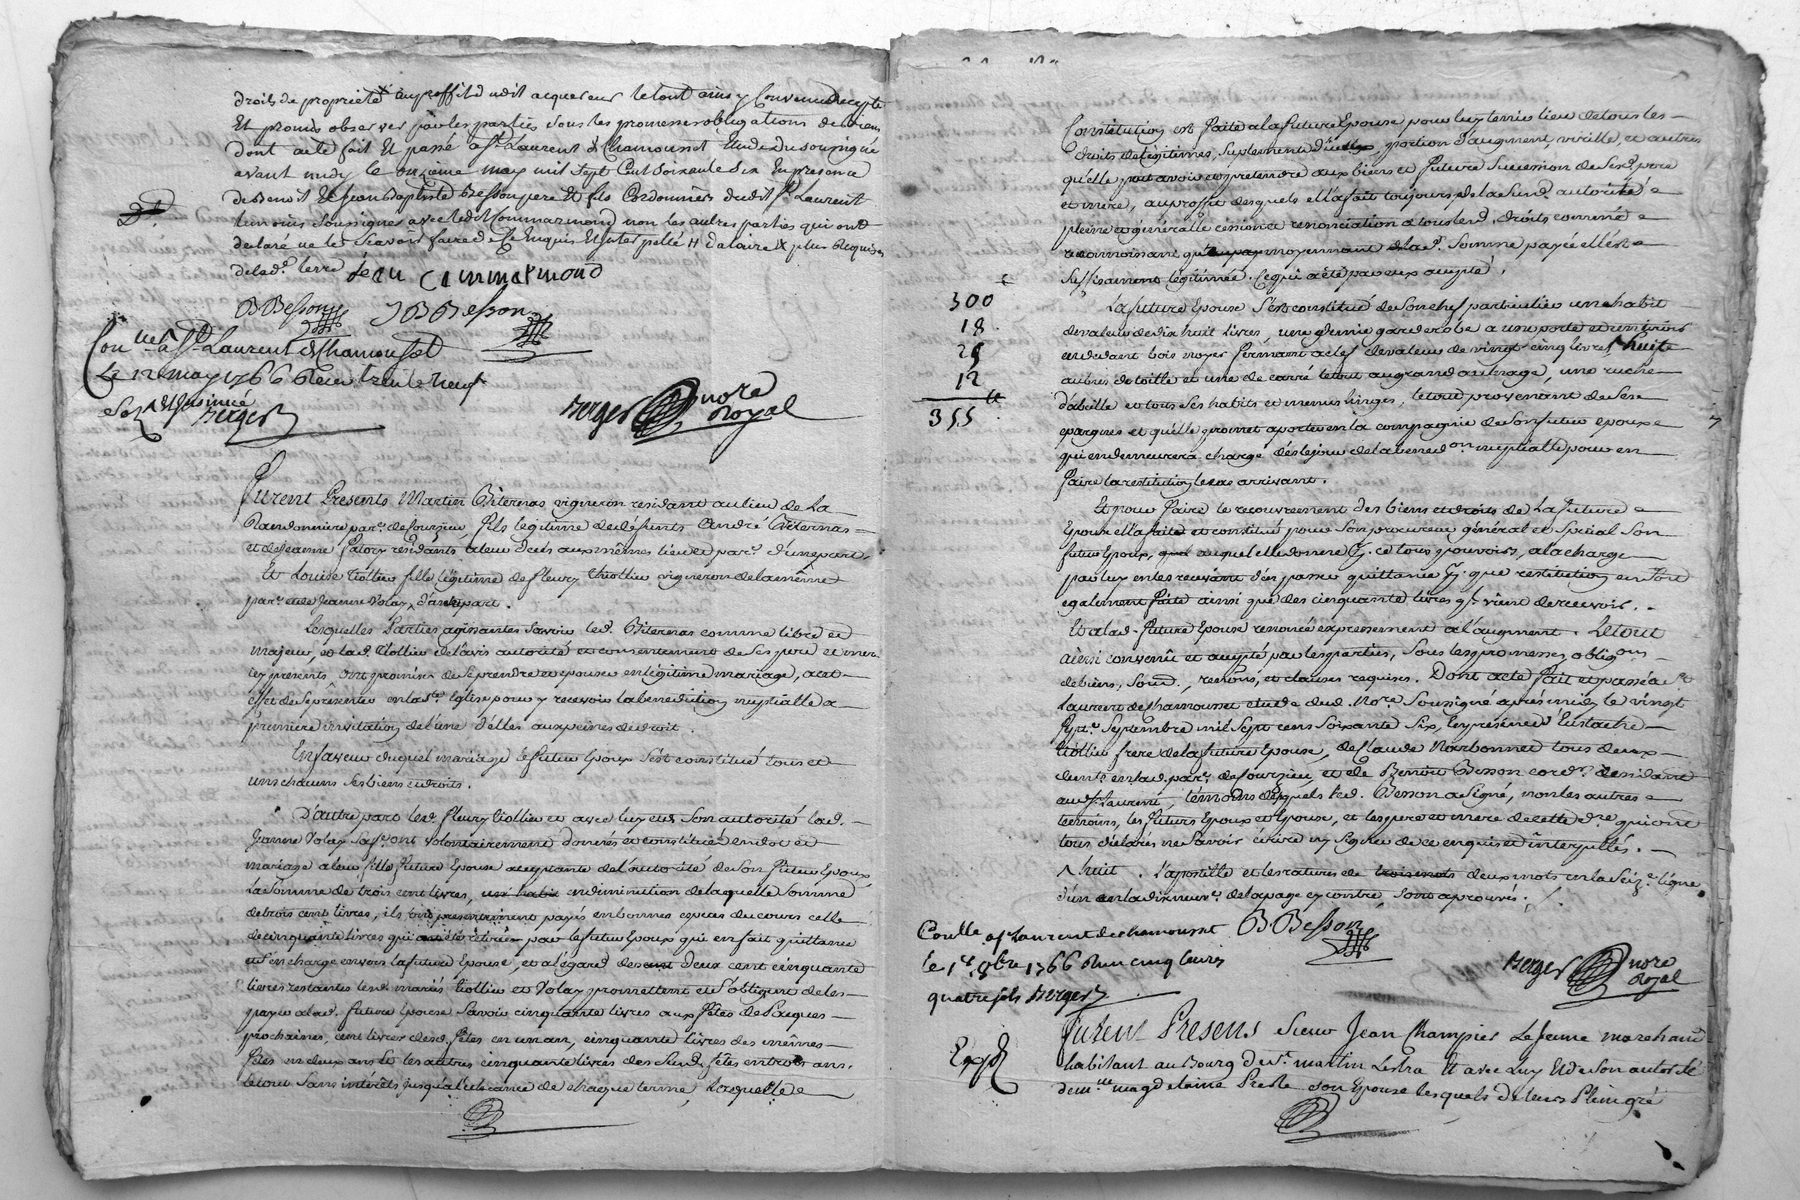 droits de propriété au proffit dudit acquereur le tout ainsy Convenu accepte
Et promis observer par les parties sous les promesses obligations de biens
dont acte fait Et passé a St. Laurent de Chamousset Etude du soussigné
avant midy le onzieme may mil sept Cent soixante six En presence
de Benoit Et Jean Baptiste Besson pere Et fils Cordonniers dudit St. Laurent
temoins soussignes avec ledit Commarmond non les autres parties qui ont
declaré ne le sçavoir faire de ce Enquis Et interpellé
de lad. terre Jean Cammarmond
B Besson J B Besson
Conlle a St. Laurent de Chamousset
Le 12 may 1766 Reçu trente neuf
sols
Berger
Berger nore Royal
Furent Presents Martin Biternas vigneron residant au lieu de La
Randonniere parr. de Sourzieu, fils légitime de défunts André Biternas
et de Jeanne residants a leur décés aux mêmes lieu et parr. d'une part,
Et Louise Tiollier fille légitime de fleury Thiollier vigneron de la même
parr. et de Jeanne Volay, d'autre part.
Lesquelles Parties agissantes savoir led. Biternas comme libre et
majeur, et lad. Tiollier de l'avis autorité et consentement de ses pere et mere
icy presents ont promis de se prendre et epouser en légitime mariage, a cet
effet de se présenter en la Ste. Eglise pour y recevoir la bénédiction nuptialle a
premiere invitation de l'une d'elles aux peines de droit.
En faveur duquel mariage le futur Epoux s'est constitué tous et
uns chacuns ses biens et droits.
D'autre part led. fleury Tiollier et avec luy et de son autorité lad.
Jeanne Volay sa fe. ont volontairement donnés et constitués en dot et
mariage a leur fille future Epouse acceptante de l'autorité de son futur Epoux
La somme de trois cent livres, en diminution de laquelle somme
de trois cent livres, ils ont présentement payés en bonnes especes du cours celle
de cinquante livres qui ont été retirées par le futur Epoux qui en fait quittance
et s'en charge envers la future Epouse, et a l'égard des deux cent cinquante
livres restantes lesd. mariés Tiollier et Volay promettent et s'obligent de les
payer a lad. future Epouse Savoir cinquante livres aux fêtes de Pacques
prochaines, cent livres desd. fêtes en un an, cinquante livres des mêmes
fêtes en deux ans Et les autres cinquante livres des susd. fêtes en trois ans.
le tout sans intérêts jusqu'a l'échéance de chaque terme, Laquelle
Constitution est faite a la future Epouse pour luy tenir lieu de tous les
droits de légitimes, suplement d'icelle, portion d'augment, virille, et autres
qu'elle peut avoir et pretendre aux biens et future Succession de sesd. pere
et mere, au proffit desquels elle a fait toujours de la susd. autorité
pleine et générale cession et renonciation a tous lesd. droits comme
reconnoissant qu'au moyennant lad. Somme payée elle est
suffisament légitimée. Ce qui a été par eux accepté.
300
18
25
12
355
La future Epouse s'est constitué de son chef particulier un habit
de valeur de dix huit livres, une demie garderobe a une porte et un tiroir
au dedant bois noyer fermant a clef de valeur de vingt cinq livres, huit
aulnes de toille et une de carré le tout au grand aunage, une ruche
d'abeille et tous ses habits et menus linges, le tout provenant de ses
epargnes et qu'elle promet aporter en la compagnie de son futur epoux
qui en demeurera chargé dés le jour de la bened.on nuptialle pour en
faire la restitution le cas arrivant.
Et pour faire le recouvrement des biens et droits de La future
Epouse elle a fait et constitué pour son procureur général et spécial son
futur Epoux, auquel elle donne a ce tous pouvoirs, a la charge
par luy en les recevant d'en passer quittance que restitution en soit
egalement faite ainsi que des cinquante livres qu'il vient de recevoir.
Et a lad. future Epouse renoncé expressement a l'augment. Le tout
ainsi convenu et accepté par les parties, Sous les promesses, oblig.ons
de biens, soum., renons, et clauses requises. Dont acte fait et passé a St.
Laurent de Chamousset etude dud. Nore. Soussigné aprés midy le vingt
sept. Septembre mil sept cens soixante six, En présence d'Eustache
Tiollier frere de la future Epouse, de Claude Narbonnet tous deux
demts. en lad. parr. de Sourzieu, et de Benoit Besson cord. residant
aud. St. Laurent, témoins desquels led. Besson a Signé, non les autres
temoins, les futurs Epoux et Epouse, et les pere et mere de cette dre. qui ont
tous déclarés ne Savoir écrire ny signer de ce enquis et interpellés.
^ huit. L'apostille et les ratures de trois mots deux mots en la seize. ligne
d'un en la dix neuv. de la page cy contre, sont aprouvés.
Conlle a St Laurent de chamousset B. Besson
le 1er. 8bre 1766 Reçu cinq livres
quatre sols Berger
Berger nore Royal
Furent Presens sieur Jean Champier Le jeune marchand
Exp.
habitant au Bourg de St. martin Lestra Et avec Luy Et de son autorité
demlle magdelaine Presle son Epouse lesquels de leurs Plein gré